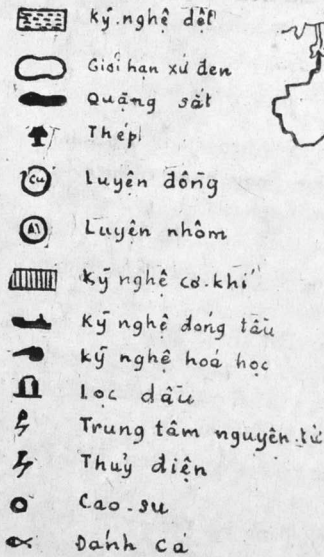 Kỹ nghệ dệt
Giới hạn xứ đen
Quặng sắt
Thép
Cu
Luyện đồng
Al
Luyện nhôm
Kỹ nghệ cơ-khí
Kỹ nghệ đóng tầu
Kỹ nghệ hoá học
Lọc dầu
Trung tâm nguyên-tử
Thuỷ điện
Cao-su
Đánh cá